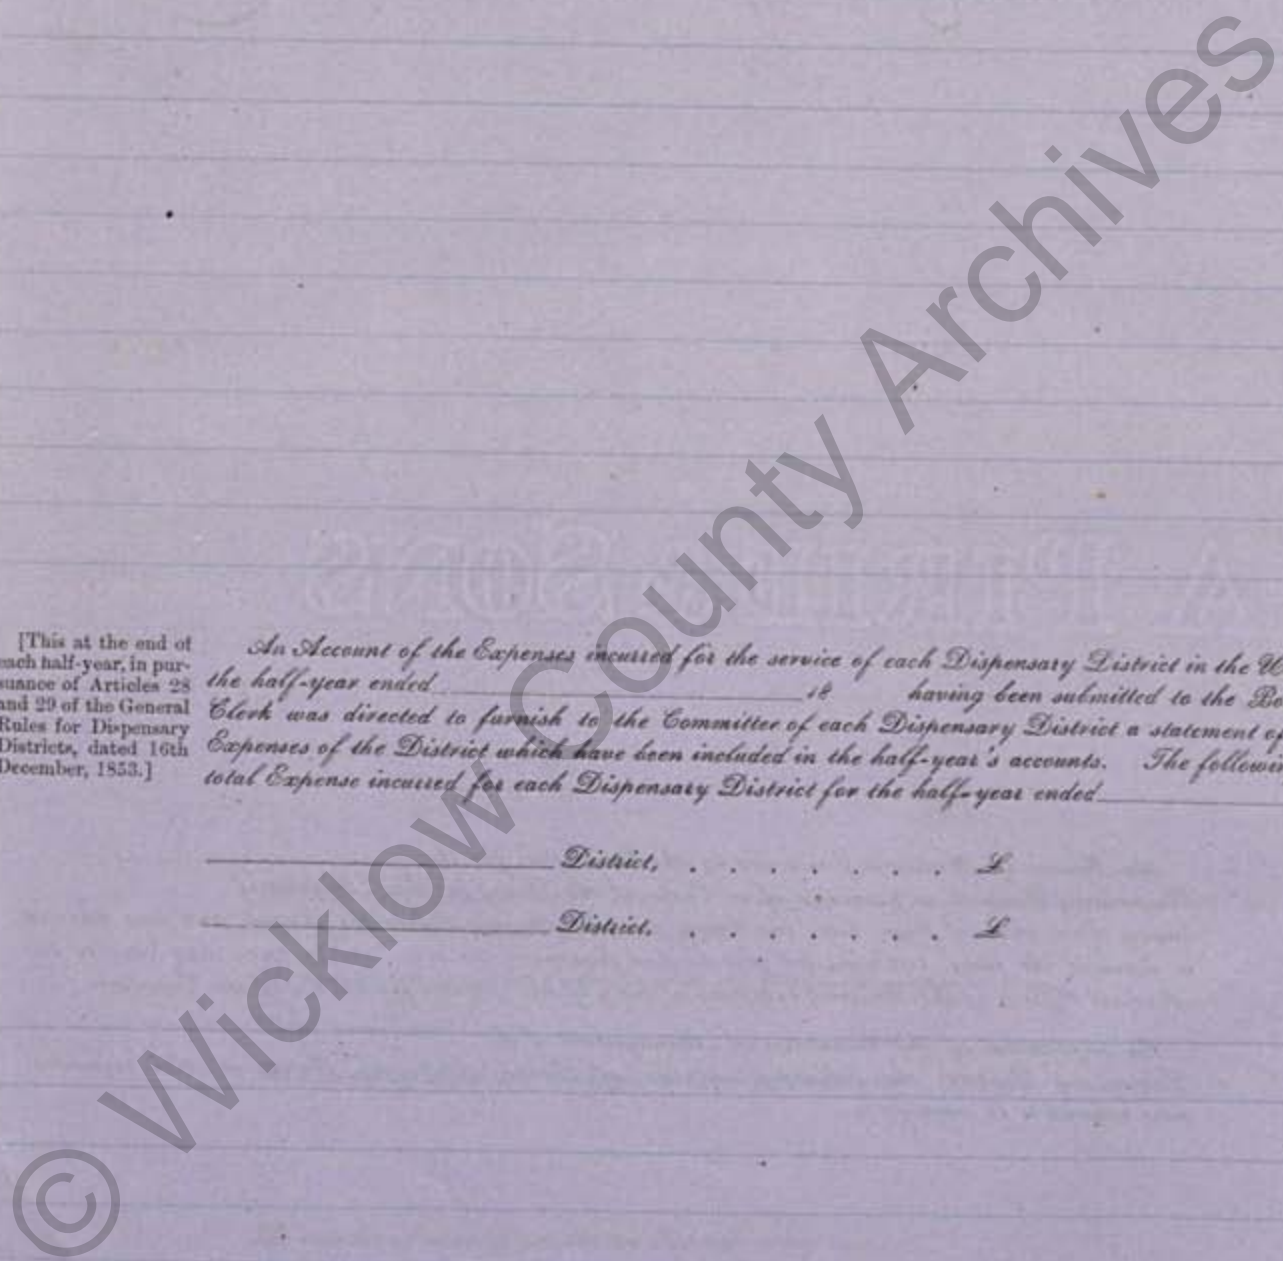 [This at the end of
each half-year, in pur-
suance of Articles 28
and 29 of the General
Rules for Dispensary
Districts, dated 16th
December, 1853.]
An Account of the Expenses incurred for the service of each Dispensary District in the U
the half-year ended 18 having been submitted to the Bo
Clerk was directed to furnish to the Committee of each Dispensary District a statement of
Expenses of the District which have been included in the half-year's accounts. The followin
total Expense incurred for each Dispensary District for the half-year ended
District, . . . . . . . £
District, . . . . . . . £
© Wicklow County Archives